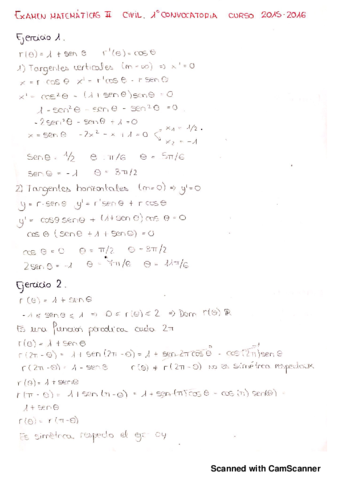 EXAMEN MATEMÁTICAS II CIVIL. 1ª CONVOCATORIA CURSO 2015-2016
Ejercicio 1.
r(θ) = 1 + sen θ r'(θ) = cos θ
1) Tangentes verticales (m = ∞) ⇒ x' = 0
x = r cos θ x' = r' cos θ - r sen θ
x' = cos²θ - (1 + sen θ) sen θ = 0
1 - sen²θ - sen θ - sen²θ = 0
-2sen²θ - sen θ + 1 = 0
x = sen θ -2x² - x + 1 = 0 x₁ = 1/2.
x₂ = -1
sen θ = 1/2 θ = π/6 θ = 5π/6
sen θ = -1 θ = 3π/2
2) Tangentes horizontales (m=0) ⇒ y' = 0
y = r · sen θ y' = r' sen θ + r cos θ
y' = cos θ sen θ + (1 + sen θ) cos θ = 0
cos θ (sen θ + 1 + sen θ) = 0
cos θ = 0 θ = π/2 θ = 3π/2
2 sen θ = -1 θ = 7π/6 θ = 11π/6
Ejercicio 2.
r(θ) = 1 + sen θ
-1 ≤ sen θ ≤ 1 ⇒ 0 ≤ r(θ) ≤ 2 ⇒ Dom r(θ) ℝ
Es una función periodica cada 2π
r(θ) = 1 + sen θ
r(2π - θ) = 1 + sen(2π - θ) = 1 + sen 2π cos θ - cos(2π) sen θ
r(2π - θ) = 1 - sen θ r(θ) ≠ r(2π - θ) no es simétrica respecto
r(θ) = 1 + sen θ
r(π - θ) = 1 + sen(π - θ) = 1 + sen(π) cos θ - cos(π) sen(θ) =
1 + sen θ
r(θ) = r(π - θ)
Es simétrica respecto el eje oy
Scanned with CamScanner